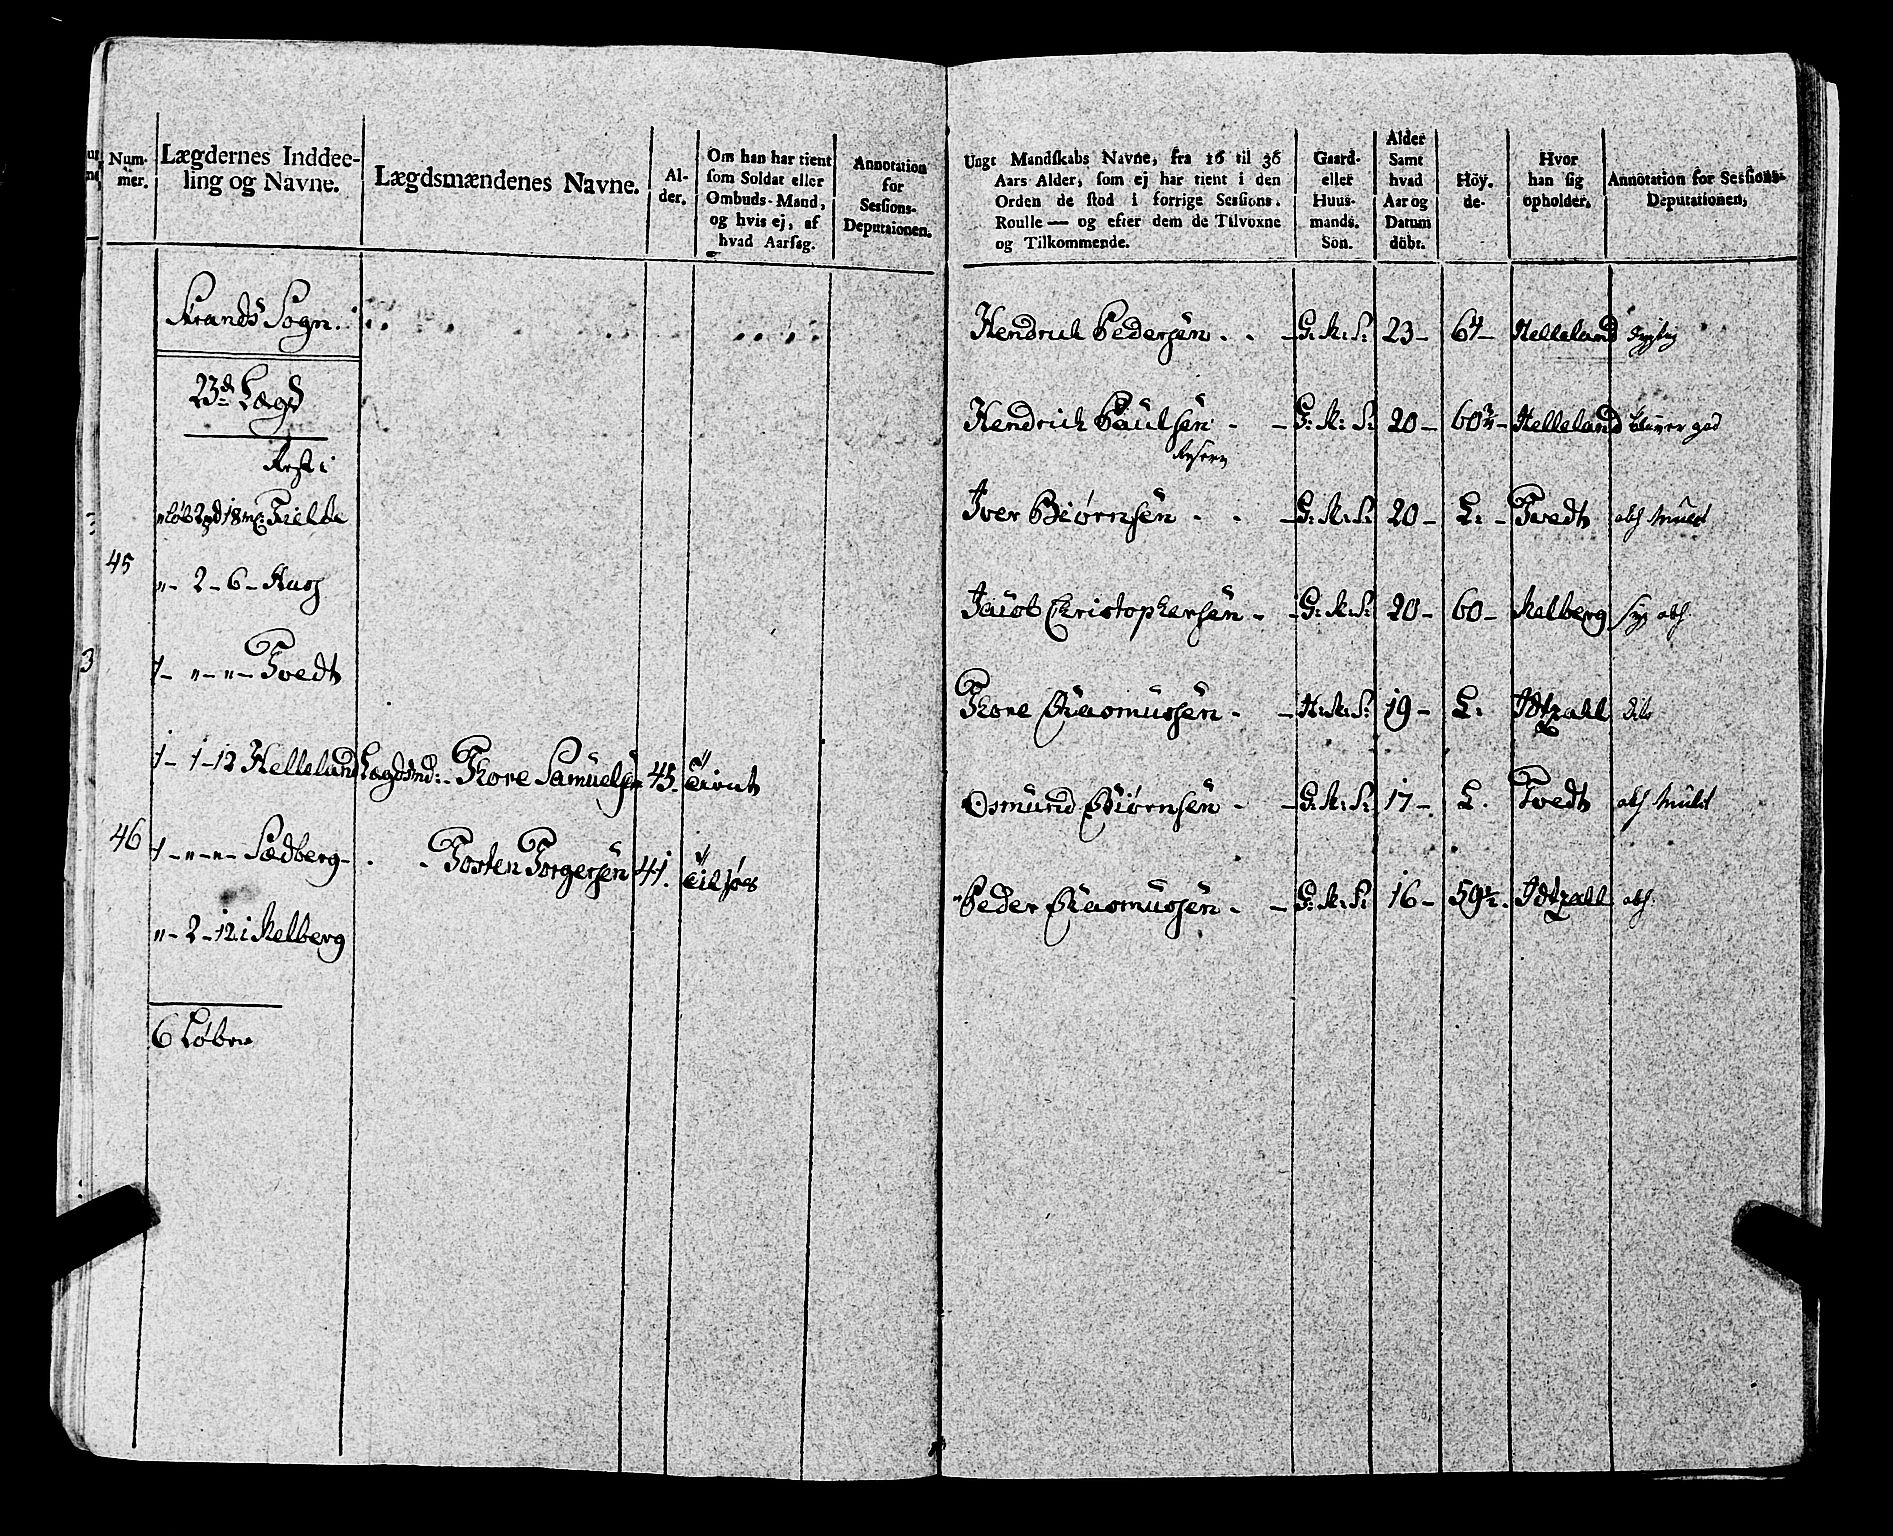 Num-
mer.
Lægdernes Inddee-
ling og Navne.
Lægdsmændenes Navne.
Al-
der.
Om han har tient
som Soldat eller
Ombuds-Mand,
og hvis ej, af
hvad Aarsag.
Annotation
for
Sessions-
Deputaionen.
Strands Sogn.
23de Lægd
Røst i
2 pd 18 mk: Fielde
45
"- 2 - 6 - Haug
1 - " - " - Tvedt
1 - 1 - 12 Helleland Lægdsmd: - Thore Samuelsen 45 - Tient
46
1 - " - " - Sædberg - Tosten Torgersen 41.
"- 2 - 12. i Kelberg
6 Løber
Ungt Mandskabs Navne, fra 16 til 36
Aars Alder, som ej har tient i den
Orden de stod i forrige Sessions.
Roulle — og efter dem de Tilvoxne
og Tilkommende.
Gaard-
eller
Huus-
mands.
Sön.
Alder
Samt
hvad
Aar og
Datum
döbt.
Höy.
de-
Hvor
han sig
opholder.
Annotation for Sessions-
Deputationen,
Hendrich Pedersen . . - G: M: S: 23 - 64 - Helleland
Hendrich Paulsen - - G: M: S: 20 - 60 3/4 - Helleland
Iver Biørnsen - . - G: M: S: 20 - L: - Tvedt
Jacob Christophersen - - G: M: S: 20 - 60 - Kelberg Syg
Thore Rasmussen - - H: M: S: 19 - L. Idtzall
Osmund Biørnsen - - G: M: S: 17 - L. Tvedt
Peder Rasmussen - - G: M: S: 16 - 59 1/2 . Idtzall